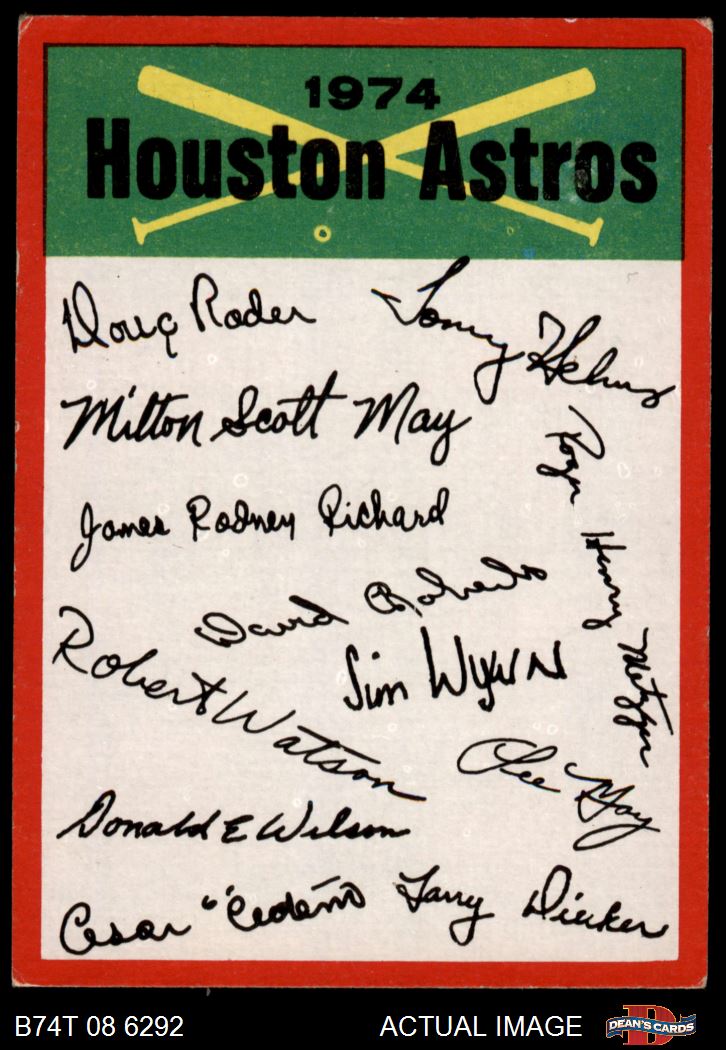 1974
Houston Astros
Doug Rader
Tommy Helms
Milton Scott May
Roger Henry Metzger
James Rodney Richard
David Roberts
Robert Watson
Jim Wynn
Lee May
Donald E Wilson
Cesar "Cedeño
Larry Dierker
B74T 08 6292
ACTUAL IMAGE
D
DEAN'S CARDS